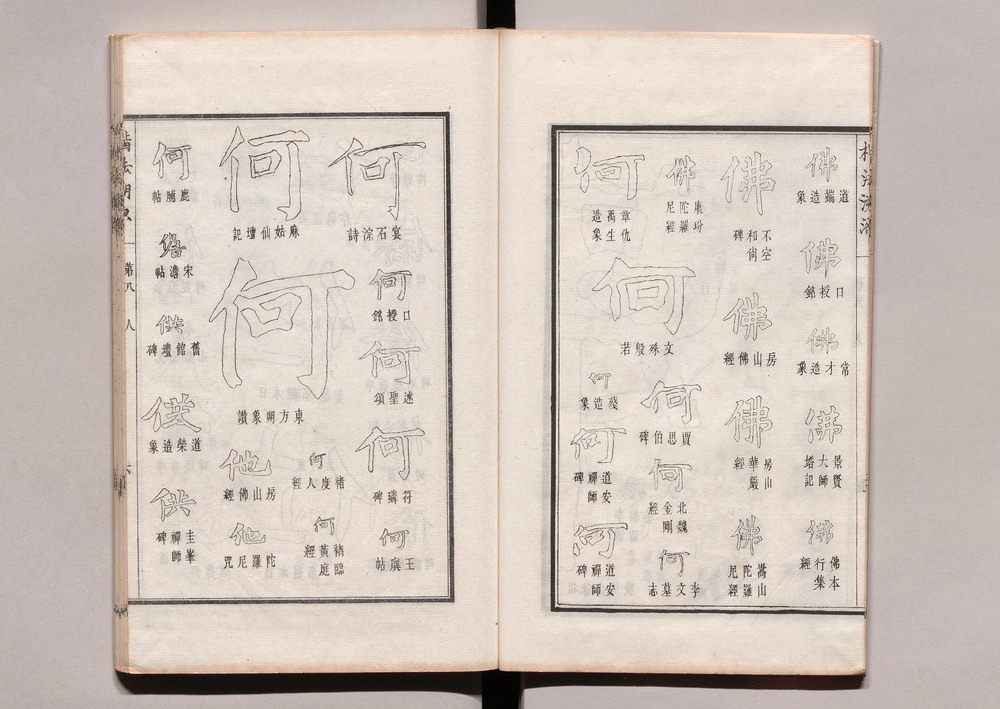 佛
道端造象
佛
口授銘
佛
常才造象
佛
景賢大師塔記
佛
佛本行集經
佛
不空和尚碑
佛
房山佛經
佛
房山華嚴經
佛
嵩山陀羅尼經
佛
康玢陀羅尼經
何
章仇禹生造象
何
文殊般若
何
賈思伯碑
何
北魏金剛經
何
李文墓志
何
殘造象
何
道安禪師碑
何
道安禪師碑
何
宴石淙詩
何
口授銘
何
述聖頌
何
符璘碑
何
王虞帖
何
麻姑仙壇記
何
東方朔象讚
何
褚度人經
何
褚臨黃庭經
他
房山佛經
他
陀羅尼咒
何
鹿脯帖
宋儋帖
供
舊館壇碑
供
道榮造象
供
圭峯禪師碑
第八
人
六